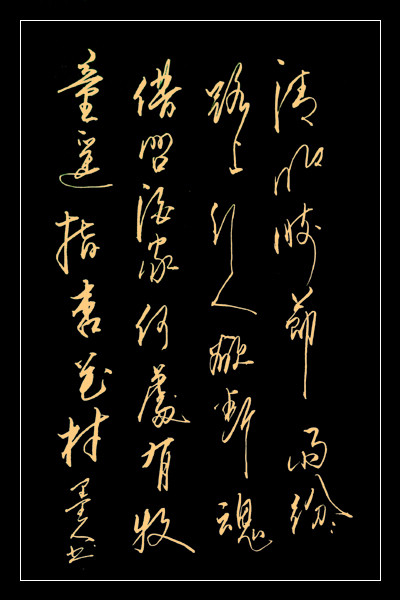 清明時節雨紛々
路上行人欲斷魂
借問酒家何處有牧
童遥指杏花村墨人书